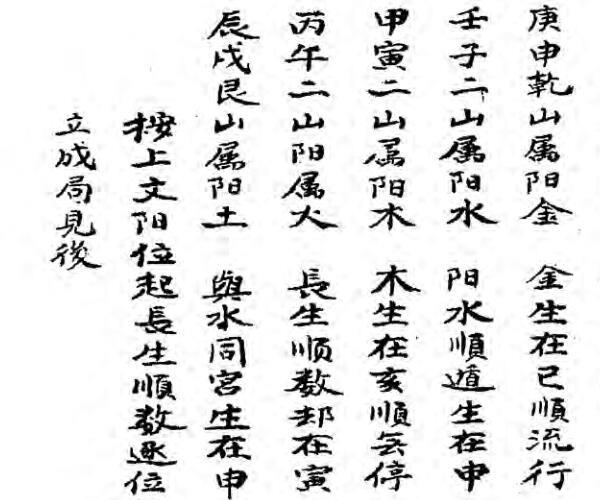 庚申乾山属阳金　金生在巳順流行
壬子二山属阳水　阳水順遁生在申
甲寅二山属阳木　木生在亥順無停
丙午二山阳属火　長生順数却在寅
辰戌艮山属阳土　與水同宮生在申
按上文阳位起長生順数逐位
立成局見後